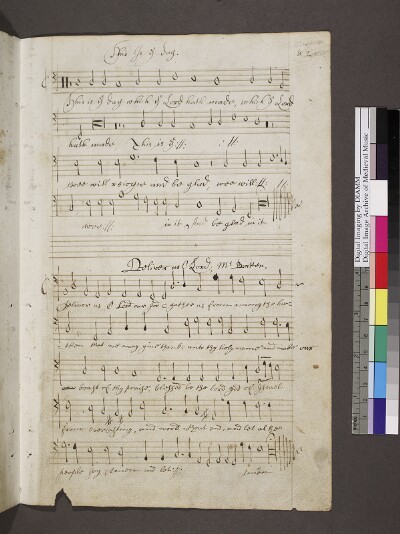 This is yᵉ day.
This is yᵉ day which yᵉ Lord hath made, which yᵉ Lord
hath made This is yᵉ :||: :||:
wee will rejoyce and be glad, wee will :||: :||:
in it, And be glad in it
Deliver us o Lord, Mʳ Batten.
Deliver us o Lord our god & gather us from among the hea-
-then that we may give thanks unto thy holy name and make our
boast of thy praise, blessed be the Lord god of Israel
from everlasting, and world without end, and let all the
people say, Amen
Digital Imaging by DIAMM
Digital Image Archive of Medieval Music